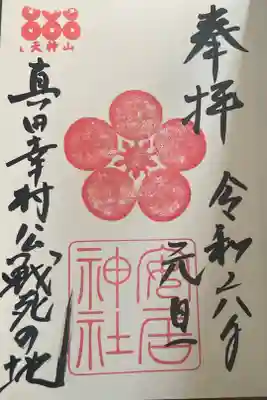 奉拝
令和六年
元旦
安居
神社
天神山
真田幸村公戦死の地